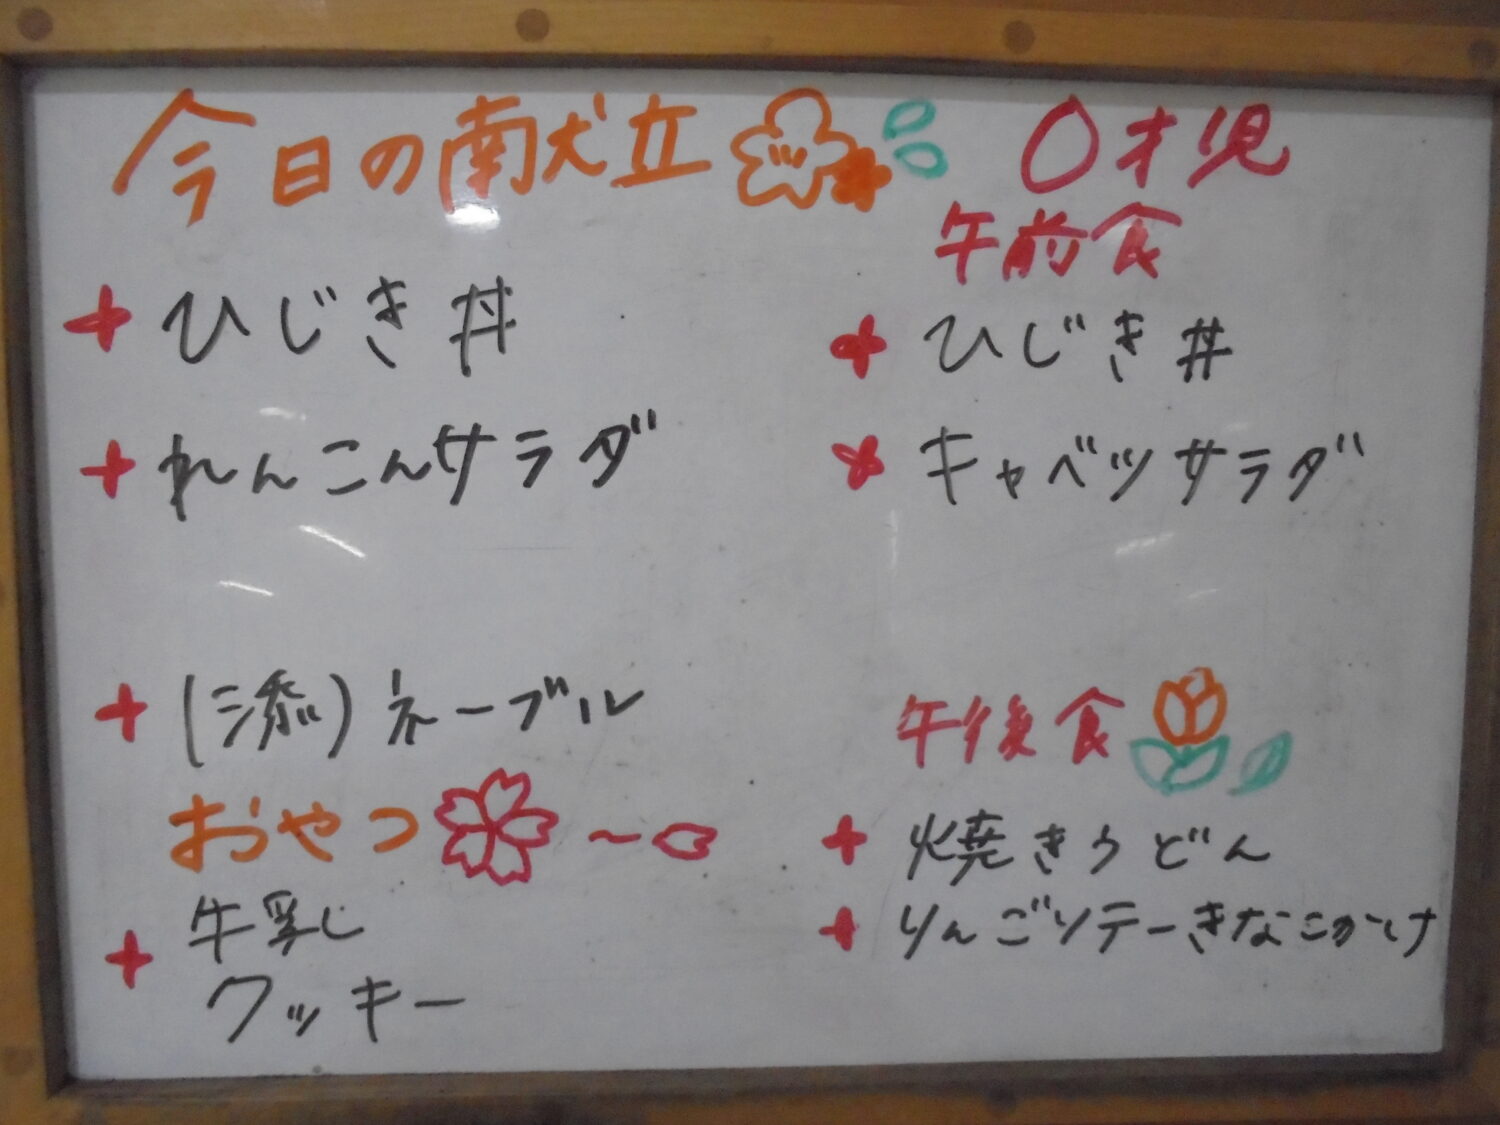 今日の献立
ひじき丼
れんこんサラダ
(添)ネーブル
おやつ
牛乳
クッキー
0才児
午前食
ひじき丼
キャベツサラダ
午後食
焼きうどん
りんごソテーきなこがけ